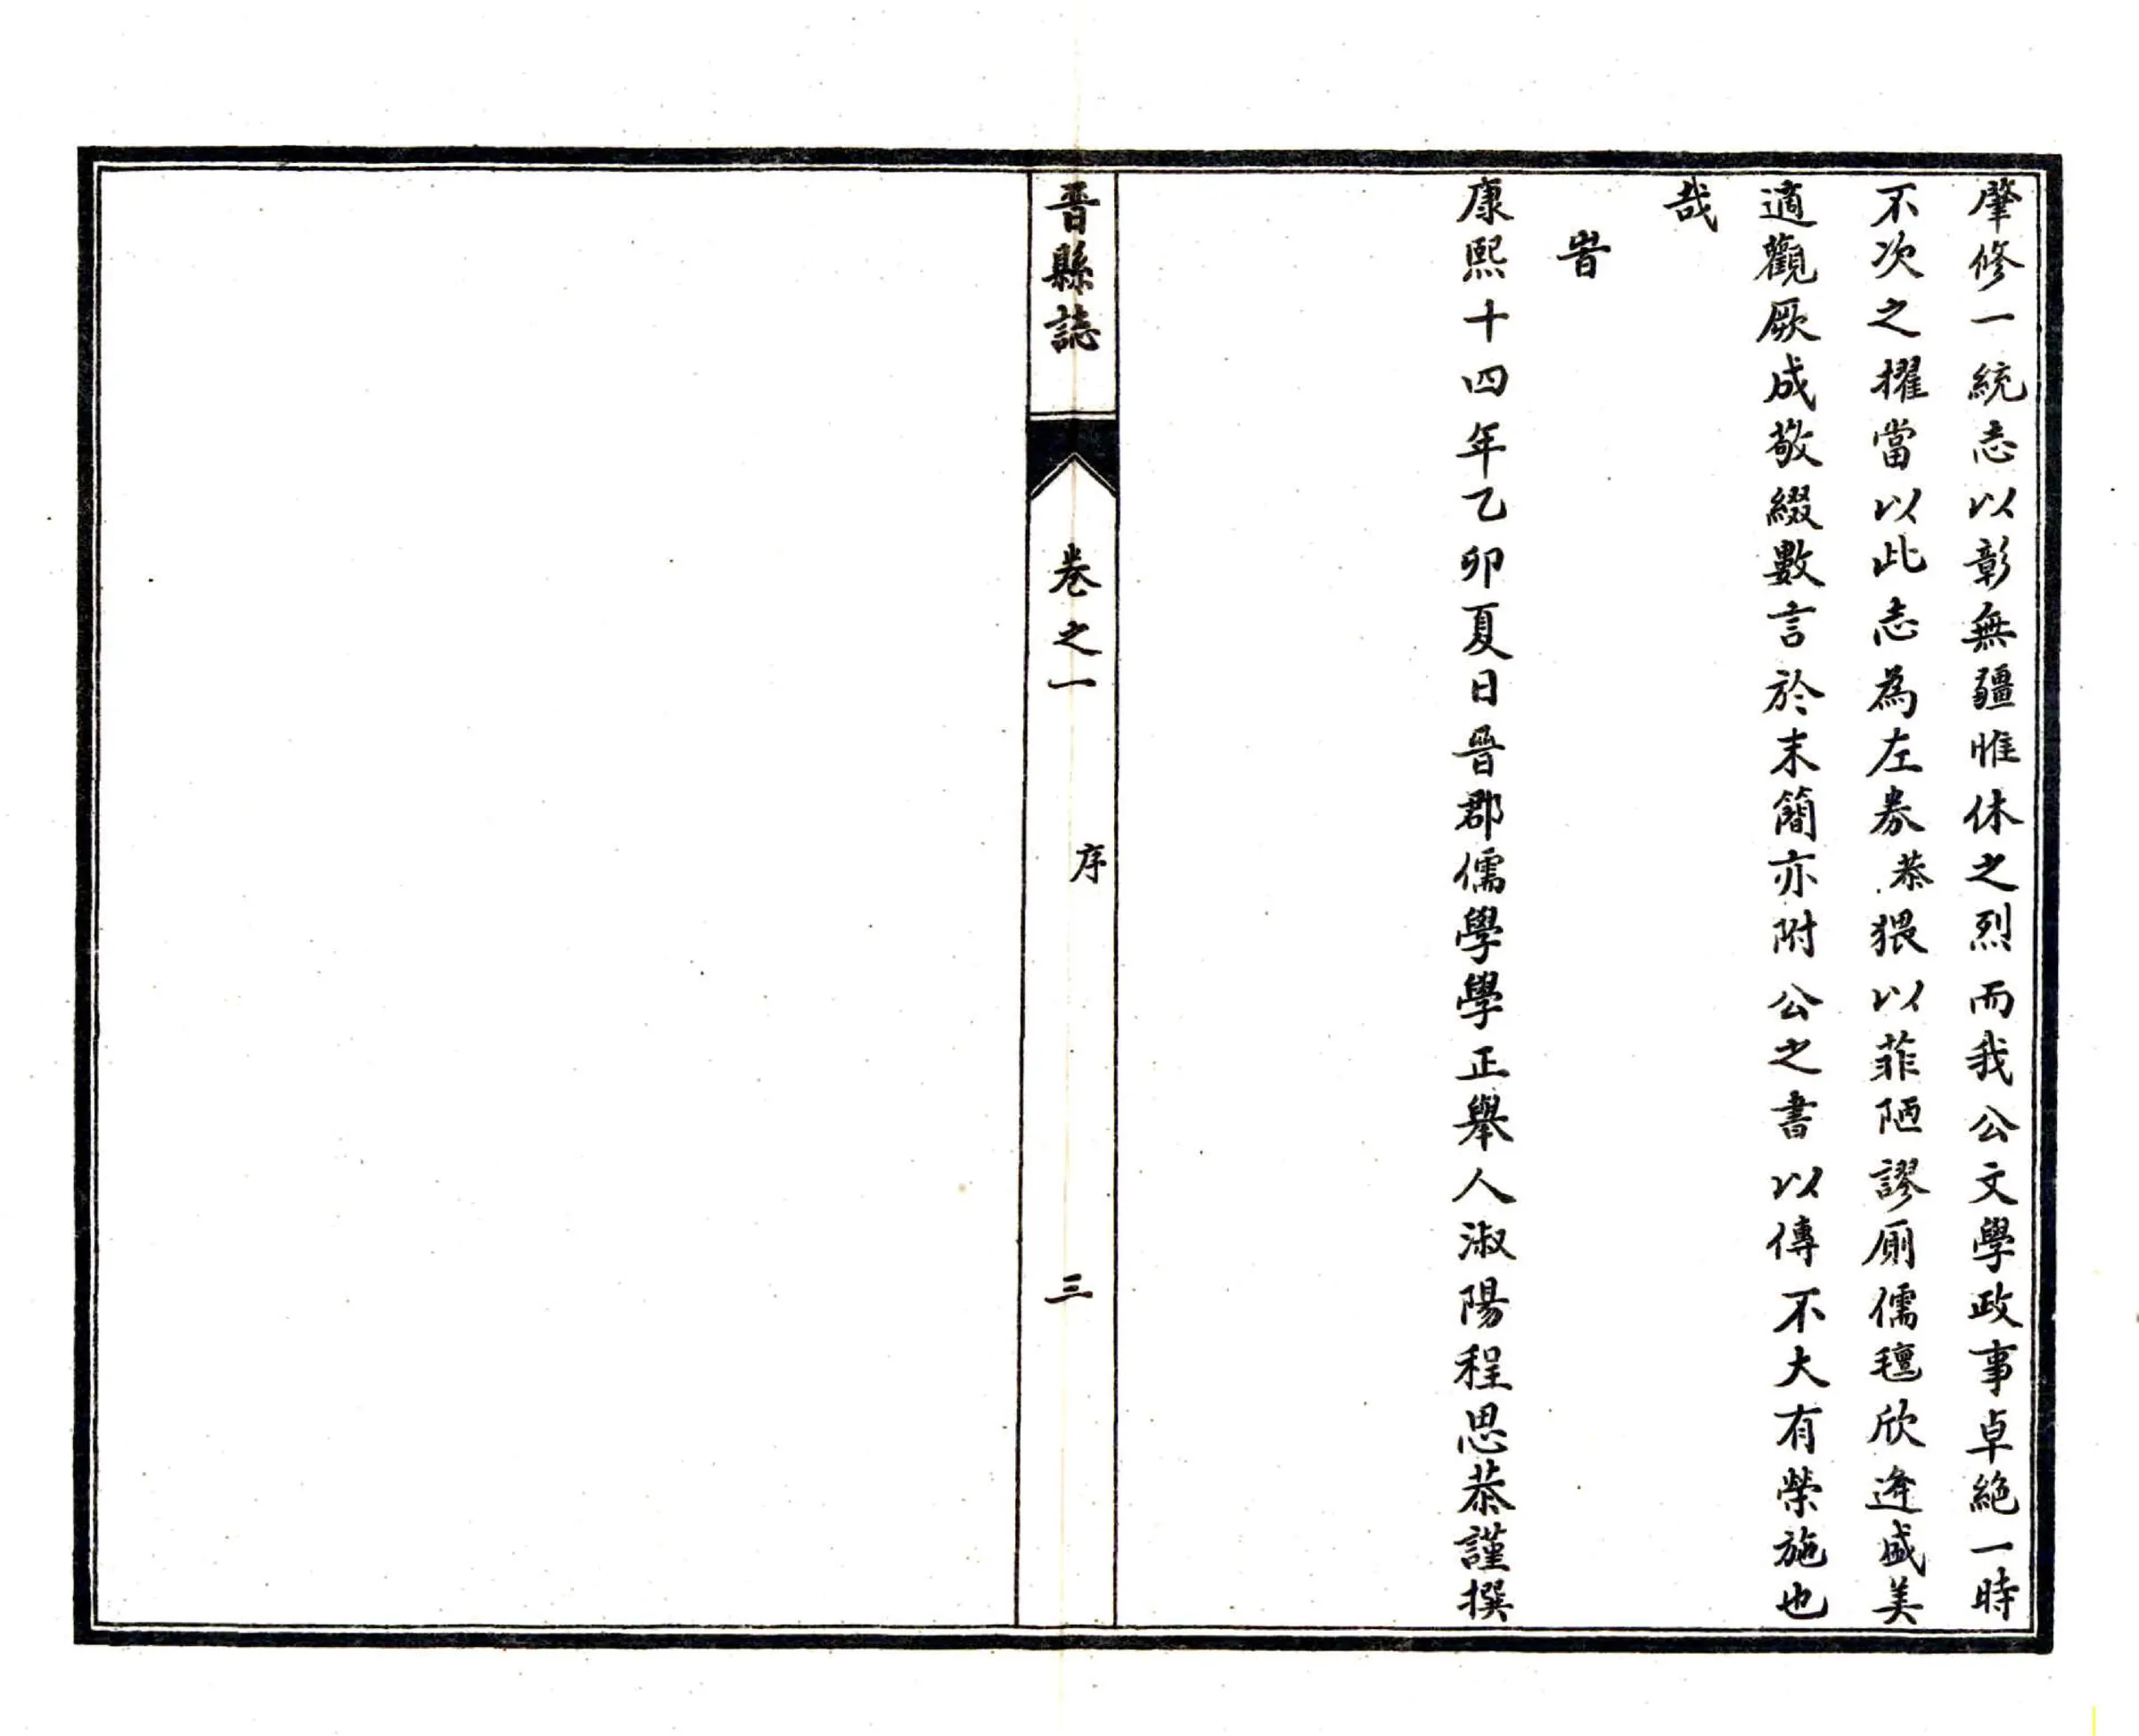 肇修一統志以彰無疆惟休之烈而我公文學政事卓絕一時
不次之擢當以此志為左券恭猥以菲陋謬廁儒氊欣逢盛美
適觀厥成敬綴數言於末簡亦附公之書以傳不大有榮施也
哉
旹
康熙十四年乙卯夏日晉郡儒學學正舉人淑陽程思恭謹撰
晉縣誌
卷之一
序
三